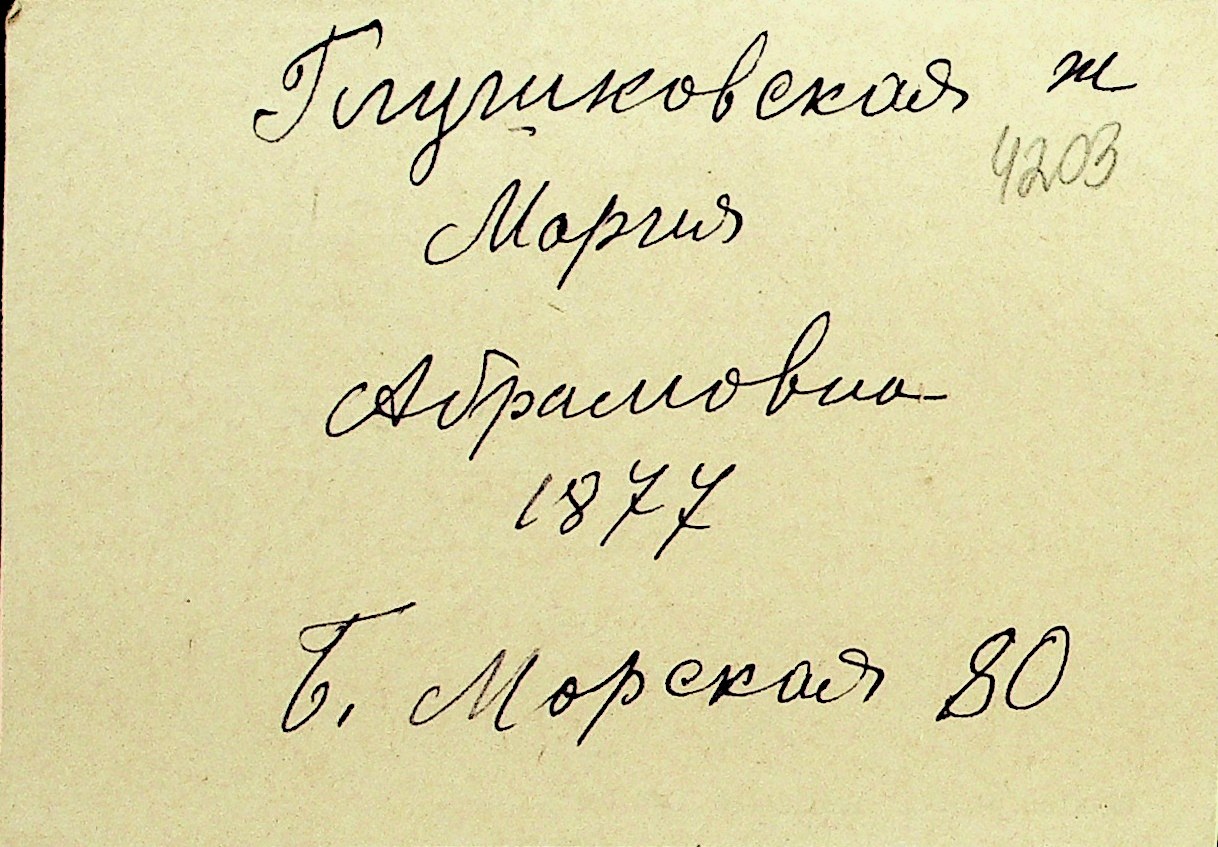 Глушковская ж
4203
Мария
Абрамовна
1877
Б. Морская 80